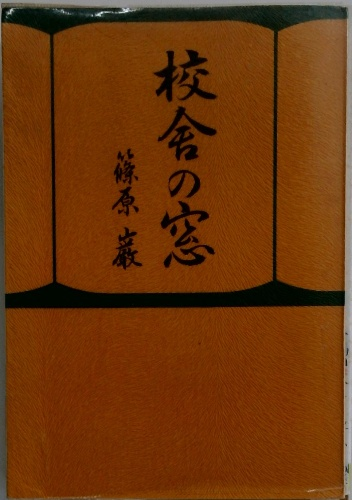 校舎の窓
篠原 巌